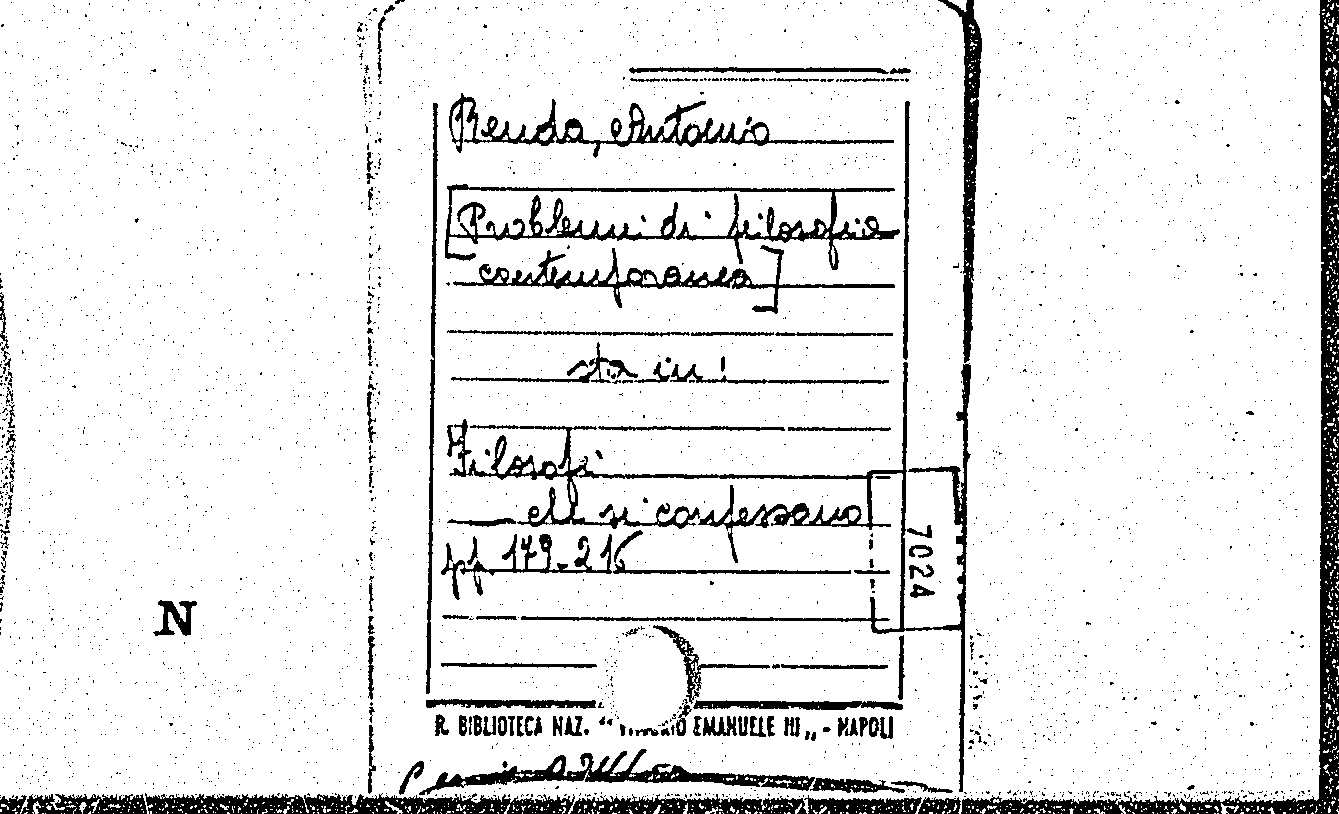 Renda, Antonio
[Problemi di filosofia
contemporanea]
sta in:
Filosofi
che si confessano
pp. 179-216
7024
N
R. BIBLIOTECA NAZ. “ VITTORIO EMANUELE III „ - NAPOLI